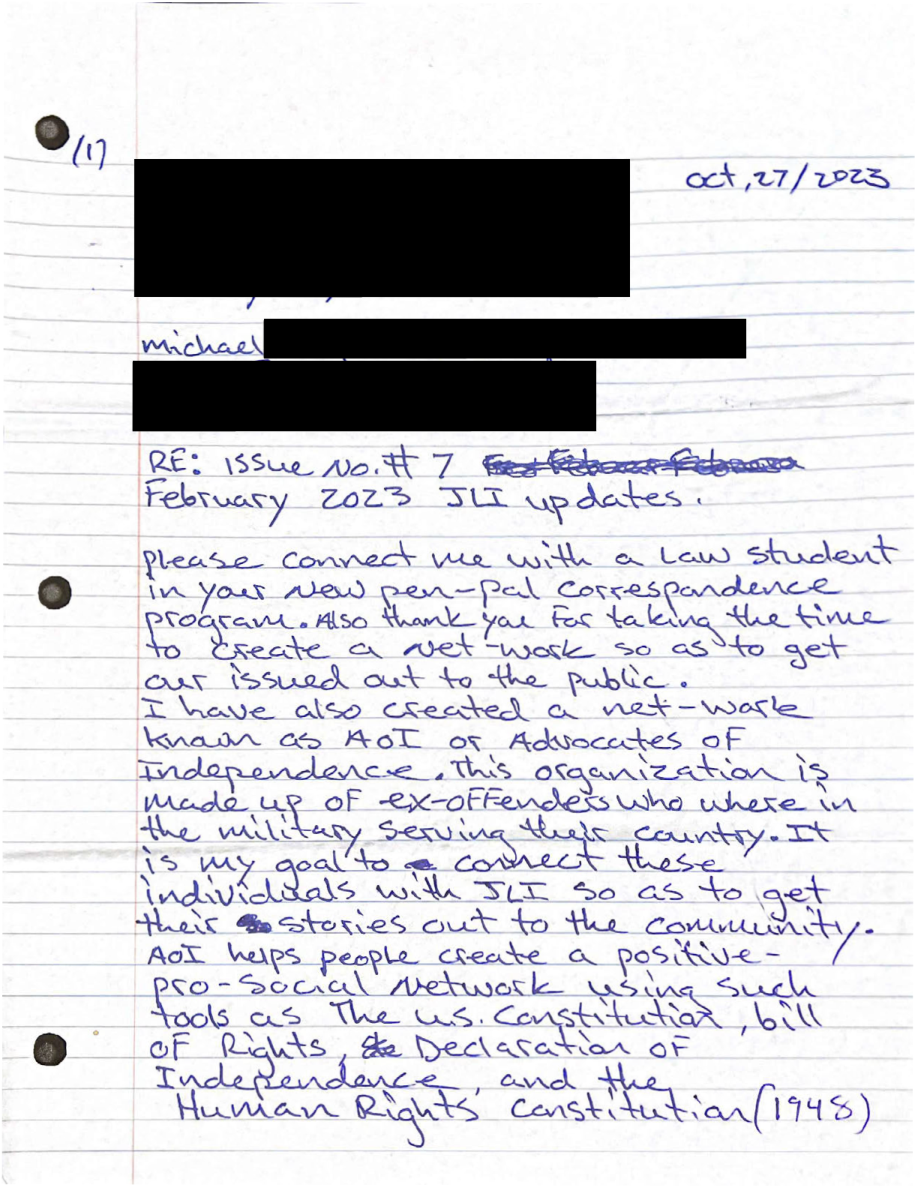 (1)
oct,27/2023
michael
RE: issue No. # 7
February 2023 JLI updates.
please connect me with a Law student
in your New pen-pal correspondence
program. Also thank you for taking the time
to create a Net-work so as to get
our issued out to the public.
I have also created a net-work
known as AOI or Advocates of
Independence. This organization is
made up of ex-offenders who where in
the military serving their country. It
is my goal to connect these
individuals with JLI so as to get
their stories out to the community.
AOI helps people create a positive-
pro-social Network using such
tools as The U.S. Constitution, bill
of Rights, Declaration of
Independence, and the
Human Rights Constitution (1948)